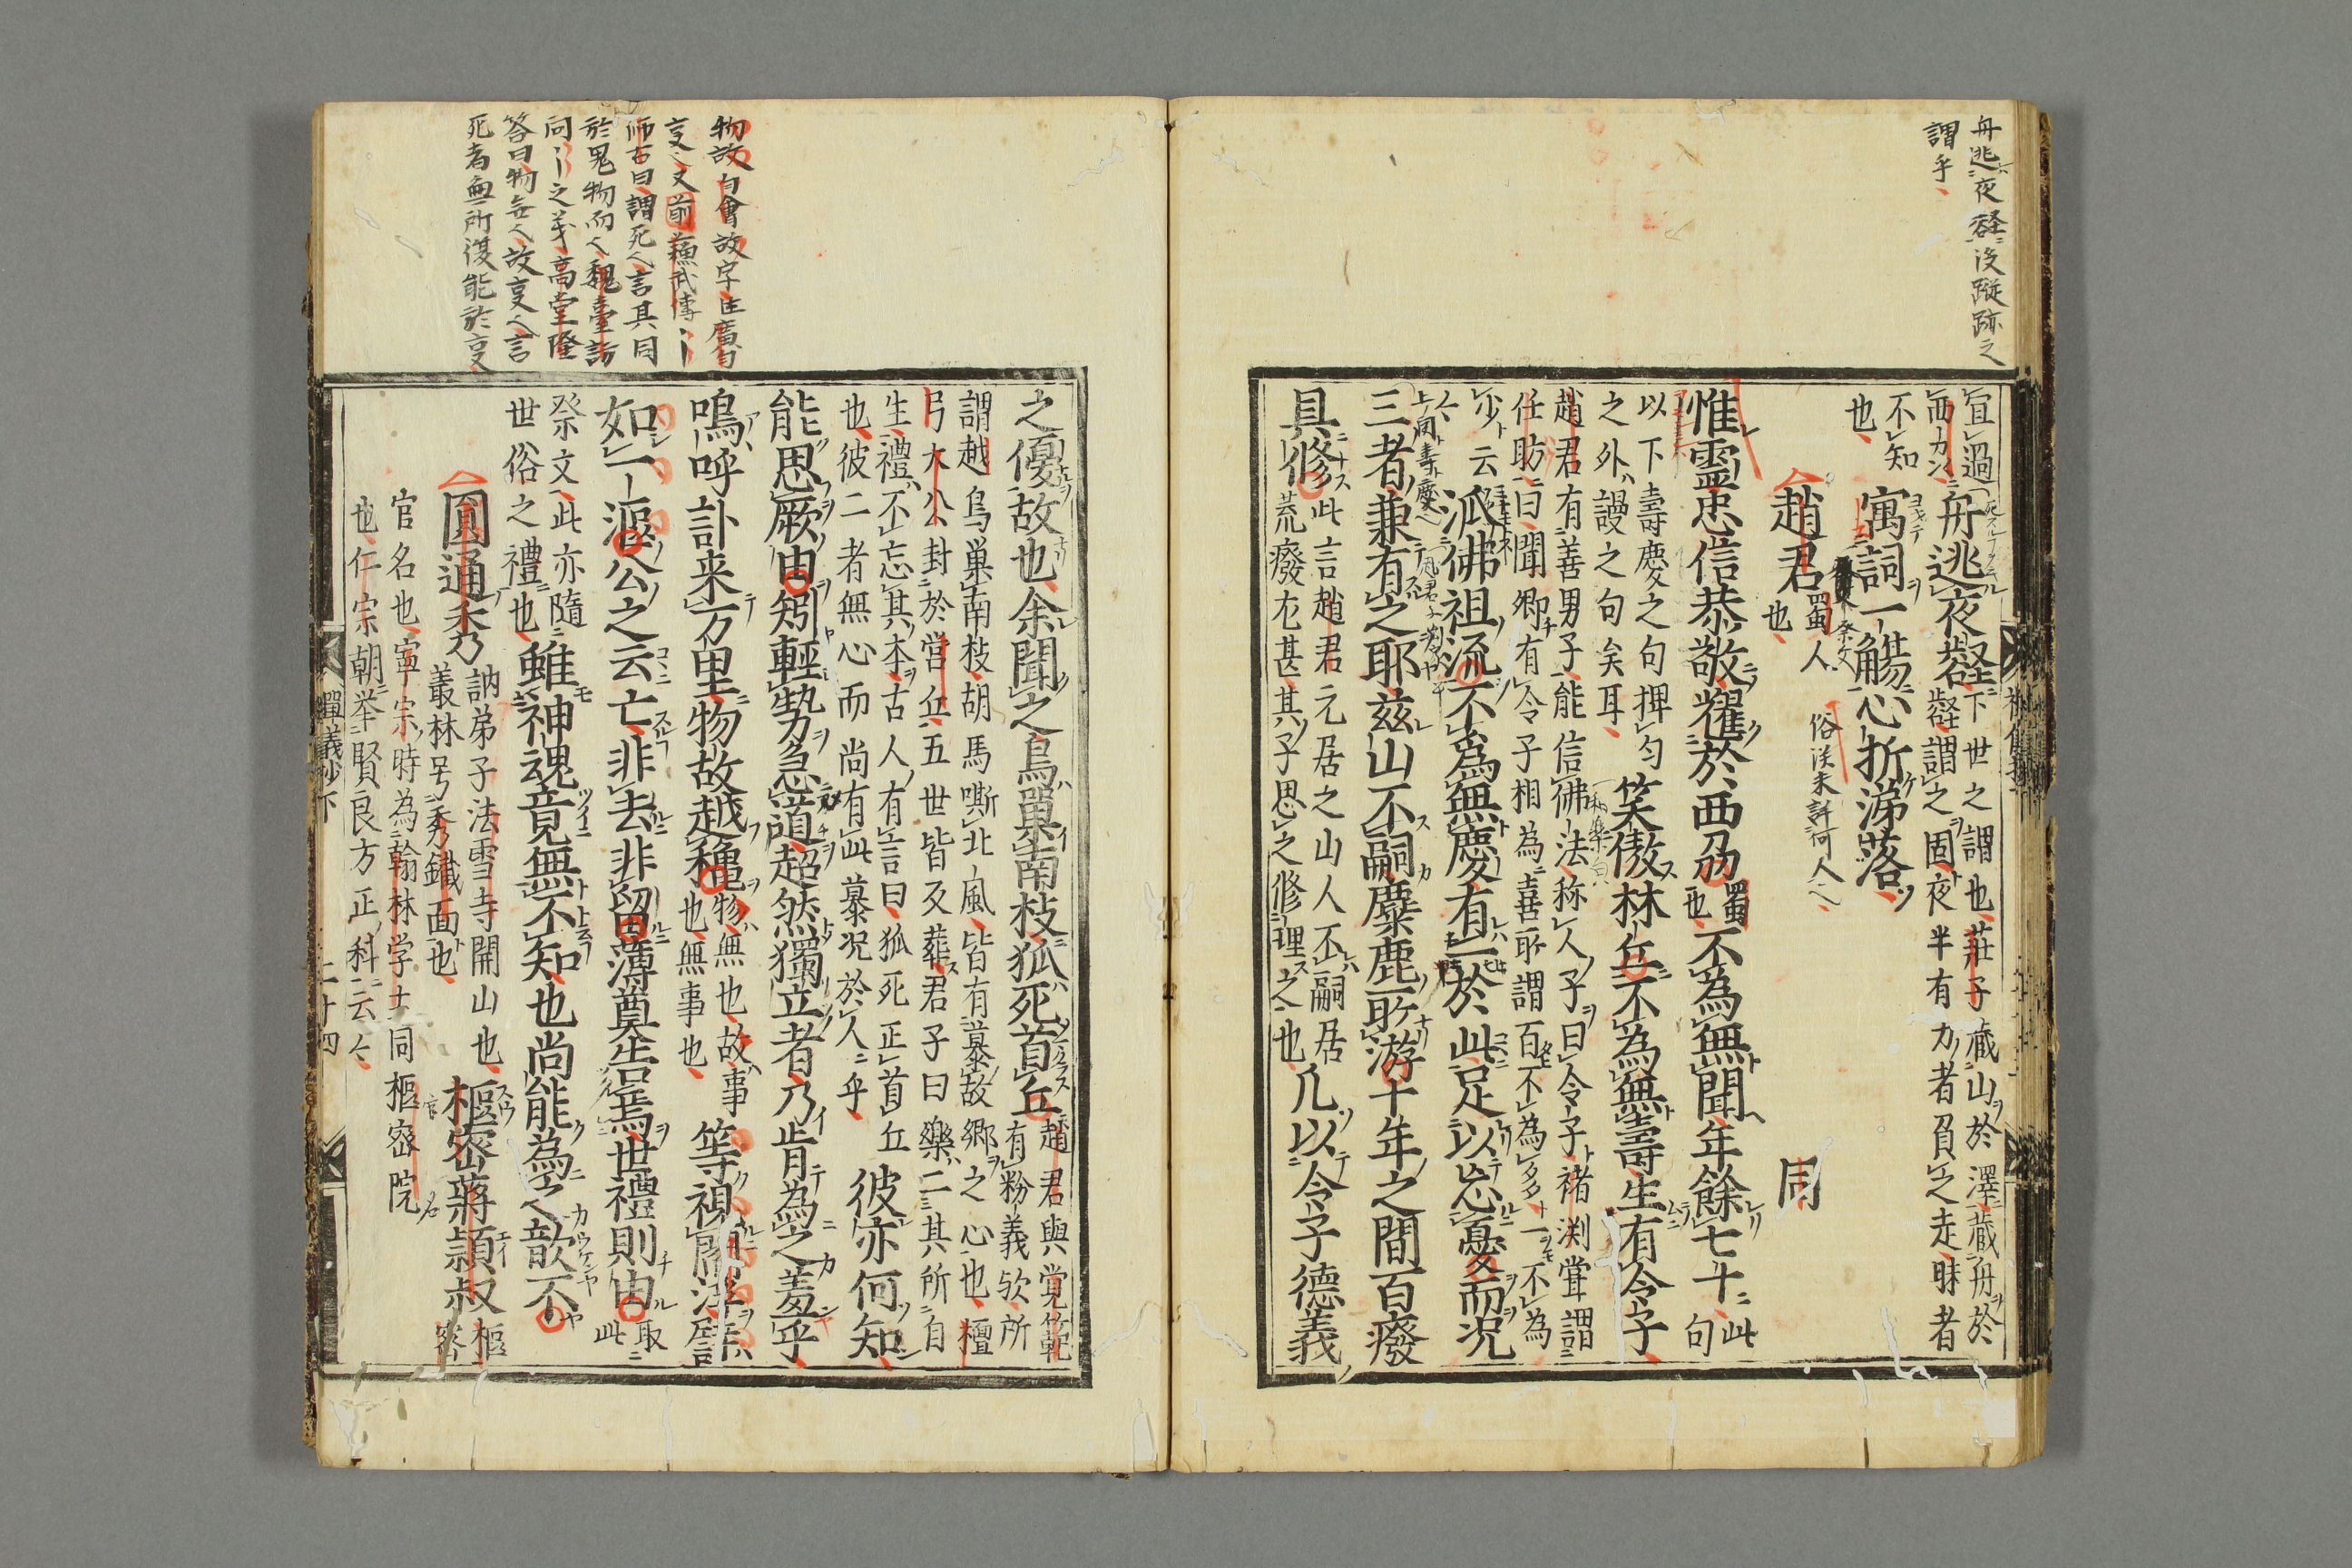 舟逃夜壑没蹤跡之
謂乎
宜過
而力
不知
也
舟逃夜壑
下世之謂也莊子藏山於澤藏舟於
壑謂之固夜半有力者負之走昧者
寓詞一觴心折涕落
趙君
蜀人
也
祭文
俗漢未詳何人
同
惟靈忠信恭敬耀於西刕
蜀
也
不為無聞年餘七十
此
句
以下壽慶之句押匀
之外謾之句矣耳
笑傲林丘不為無壽生有令子
趙君有善男子能信佛法称人子曰令子褚渕甞謂
任昉曰聞卿有令子相為喜所謂百不為多一不為
少云
派佛祖流不為無慶有一於此足以忘憂而況
三者兼有之耶茲山不嗣麋鹿所游十年之間百癈
具修
此言趙君元居之山人不嗣居
荒癈尤甚其子思之修理之也
凡以令子德義
之優故也余聞之鳥巢南枝狐死首丘
趙君與覚範
有粉義欤所
謂越鳥巢南枝胡馬嘶北風皆有慕故郷之心也檀
弓大公封於営丘五世皆反葬君子曰樂二其所自
生禮不忘其本古人有言曰狐死正首丘
也彼二者無心而尚有此慕況於人乎
彼亦何知
能思厥由矧輕勢急道超然獨立者乃肯為之羞乎
嗚呼訃来万里物故越穐
物無也故事
也無事也
等視
如
公之云亡非去非留薄奠告焉世禮則由
取
此
祭文此亦隨
世俗之禮也
雖神魂竟無不知也尚能為之歆不
圓通秀
訥弟子法雲寺開山也
叢林号秀鐵面也
樞密蔣頴叔
樞
密
官名也寧宗時為翰林学士同樞密院
也仁宗朝举賢良方正科云々
禪儀抄下
二十四
物故匀會故字註廣匀
叓又前蘓武傳
師古曰謂死言其同
於鬼物而魏臺訪
問之義高堂隆
答曰物無故叓言
死者無所復能於叓